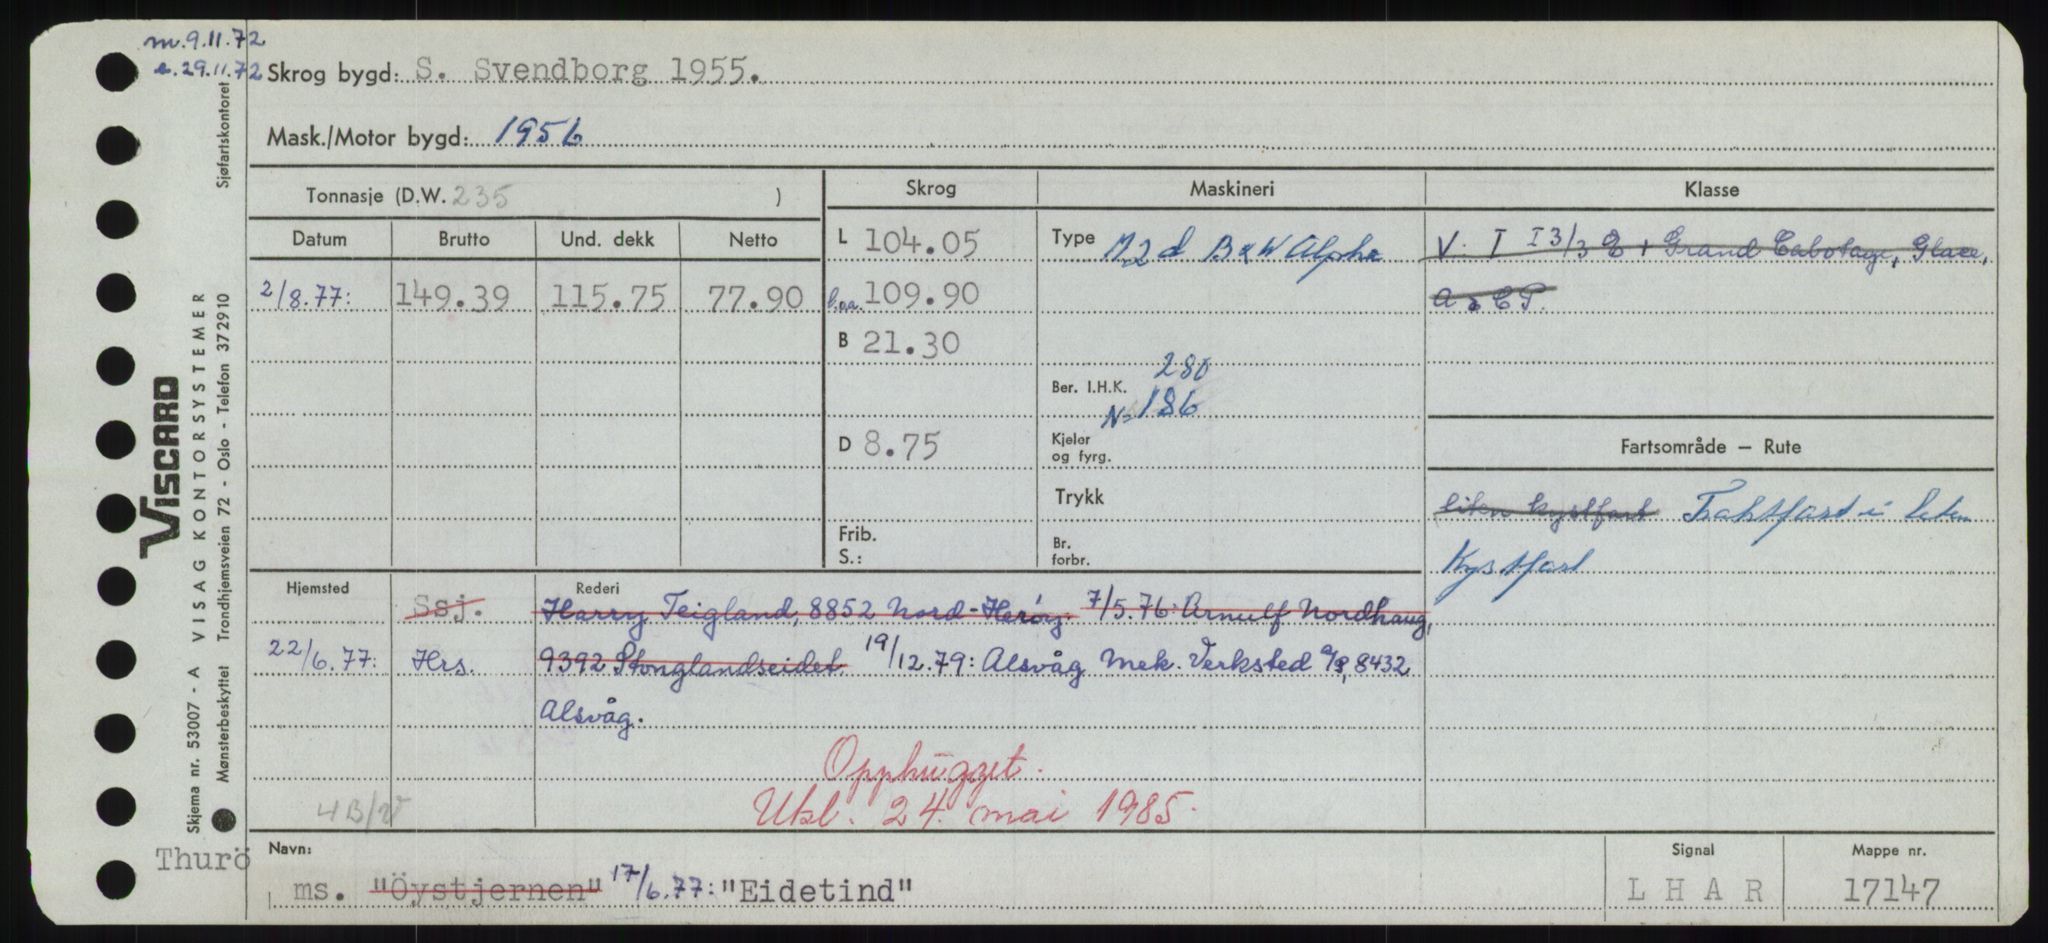 m. 9.11.72
e. 29.11.72 Skrog bygd: S. Svendborg 1955.
Mask./Motor bygd: 1956
Tonnasje (D.W. 235 )
Skrog Maskineri Klasse
Datum Brutto Und. dekk Netto
L 104.05 Type M2d B&W Alpha V. I I 3/3 E + Grand Cabotage, Glace,
2/8.77: 149.39 115.75 77.90 l.oa. 109.90 A & CP.
B 21.30
Ber. I.H.K. 280
N=186
D 8.75 Kjeler og fyrg. Fartsområde – Rute
Trykk liten kystfart Fraktfart i liten
Frib. S.: Br. forbr. Kystfart
Hjemsted Ssj. Rederi Harry Teigland, 8852 Nord-Herøy. 7/5.76: Arnulf Nordhaug,
22/6.77: Hrs. 9392 Stonglandseidet. 19/12.79: Alsvåg Mek. Verksted A/S, 8432
Alsvåg.
Opphugget.
4B/V Utsl. 24. mai 1985.
Thurö Navn: Signal Mappe nr.
ms. "Öystjernen" 17/6.77: "Eidetind" L H A R 17147
Sjøfartskontoret
VISCARD
VISAG KONTORSYSTEMER
Trondhjemsveien 72 - Oslo - Telefon 372910
Skjema nr. 53007 - A
Mønsterbeskyttet